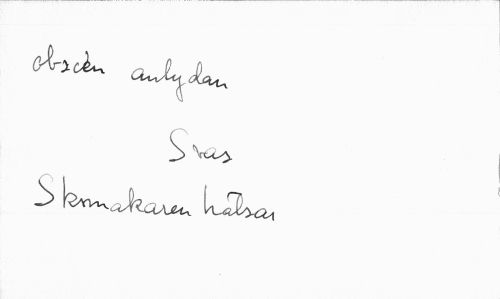 obscèn anlydan
Svas
Skomakaren hälsar